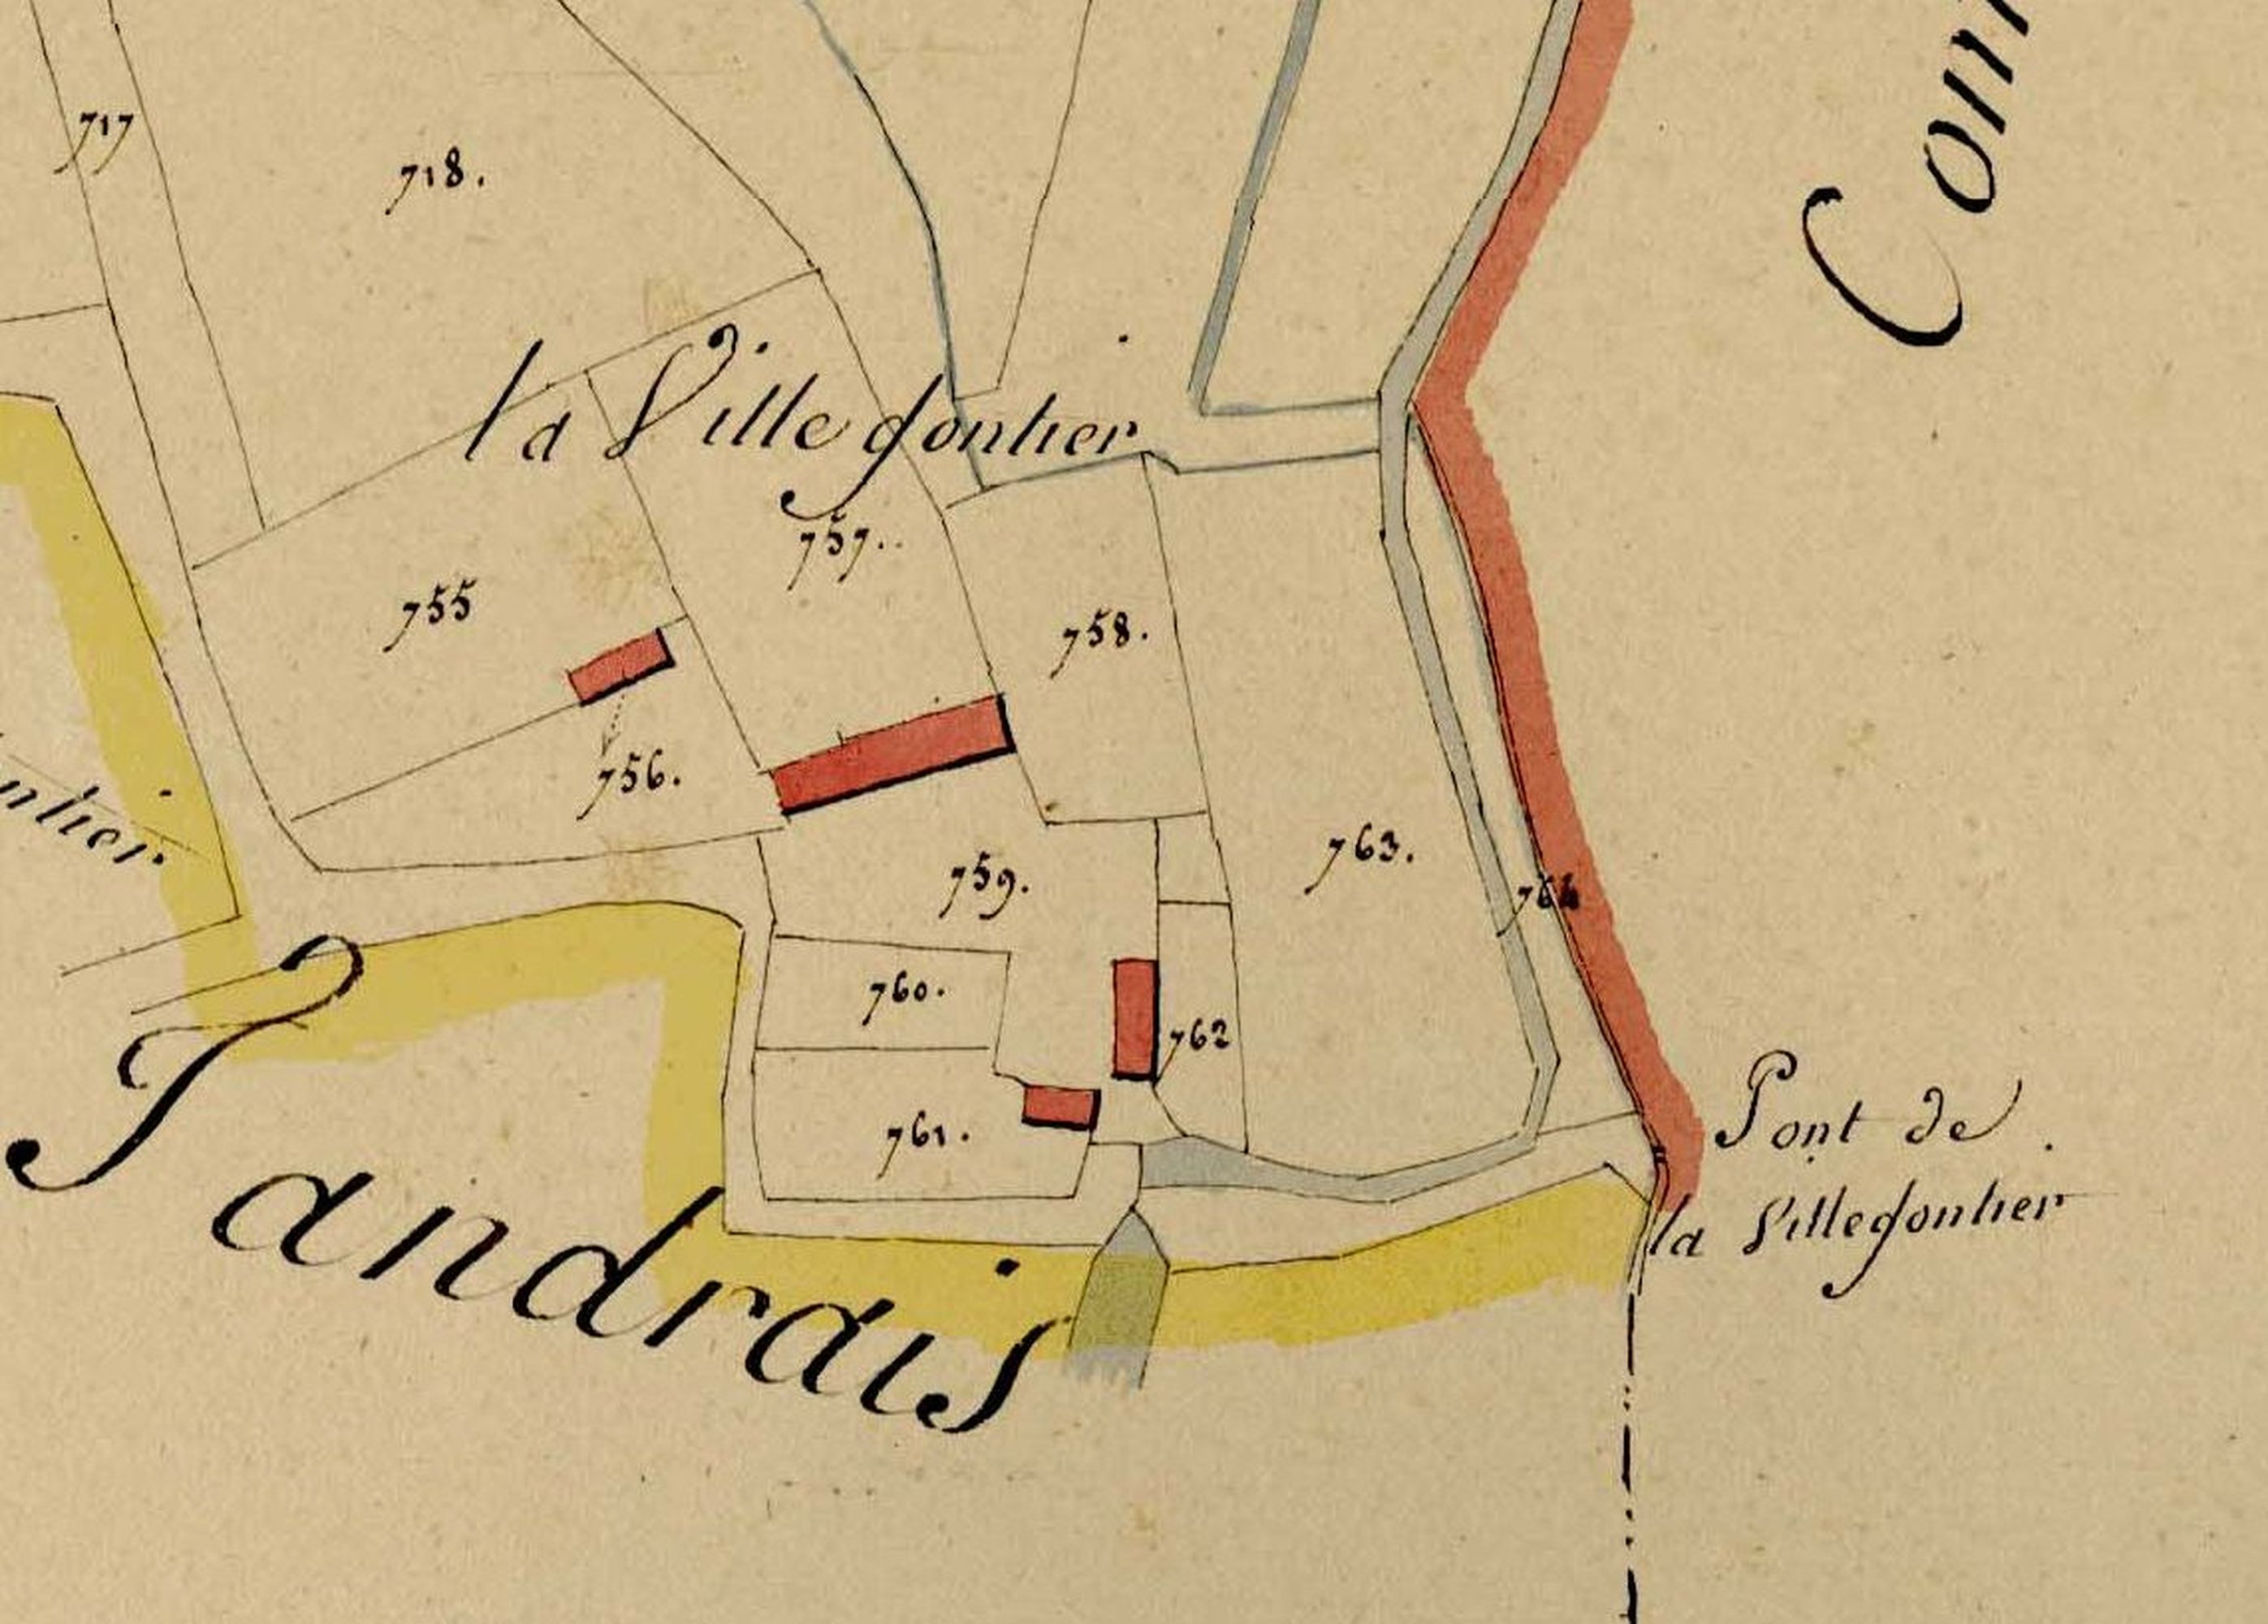 Com
717
718.
la Ville gontier
757.
755
758.
756.
763.
ntier.
759.
764
760.
762
761.
Jandrais
Pont de
la Villegontier